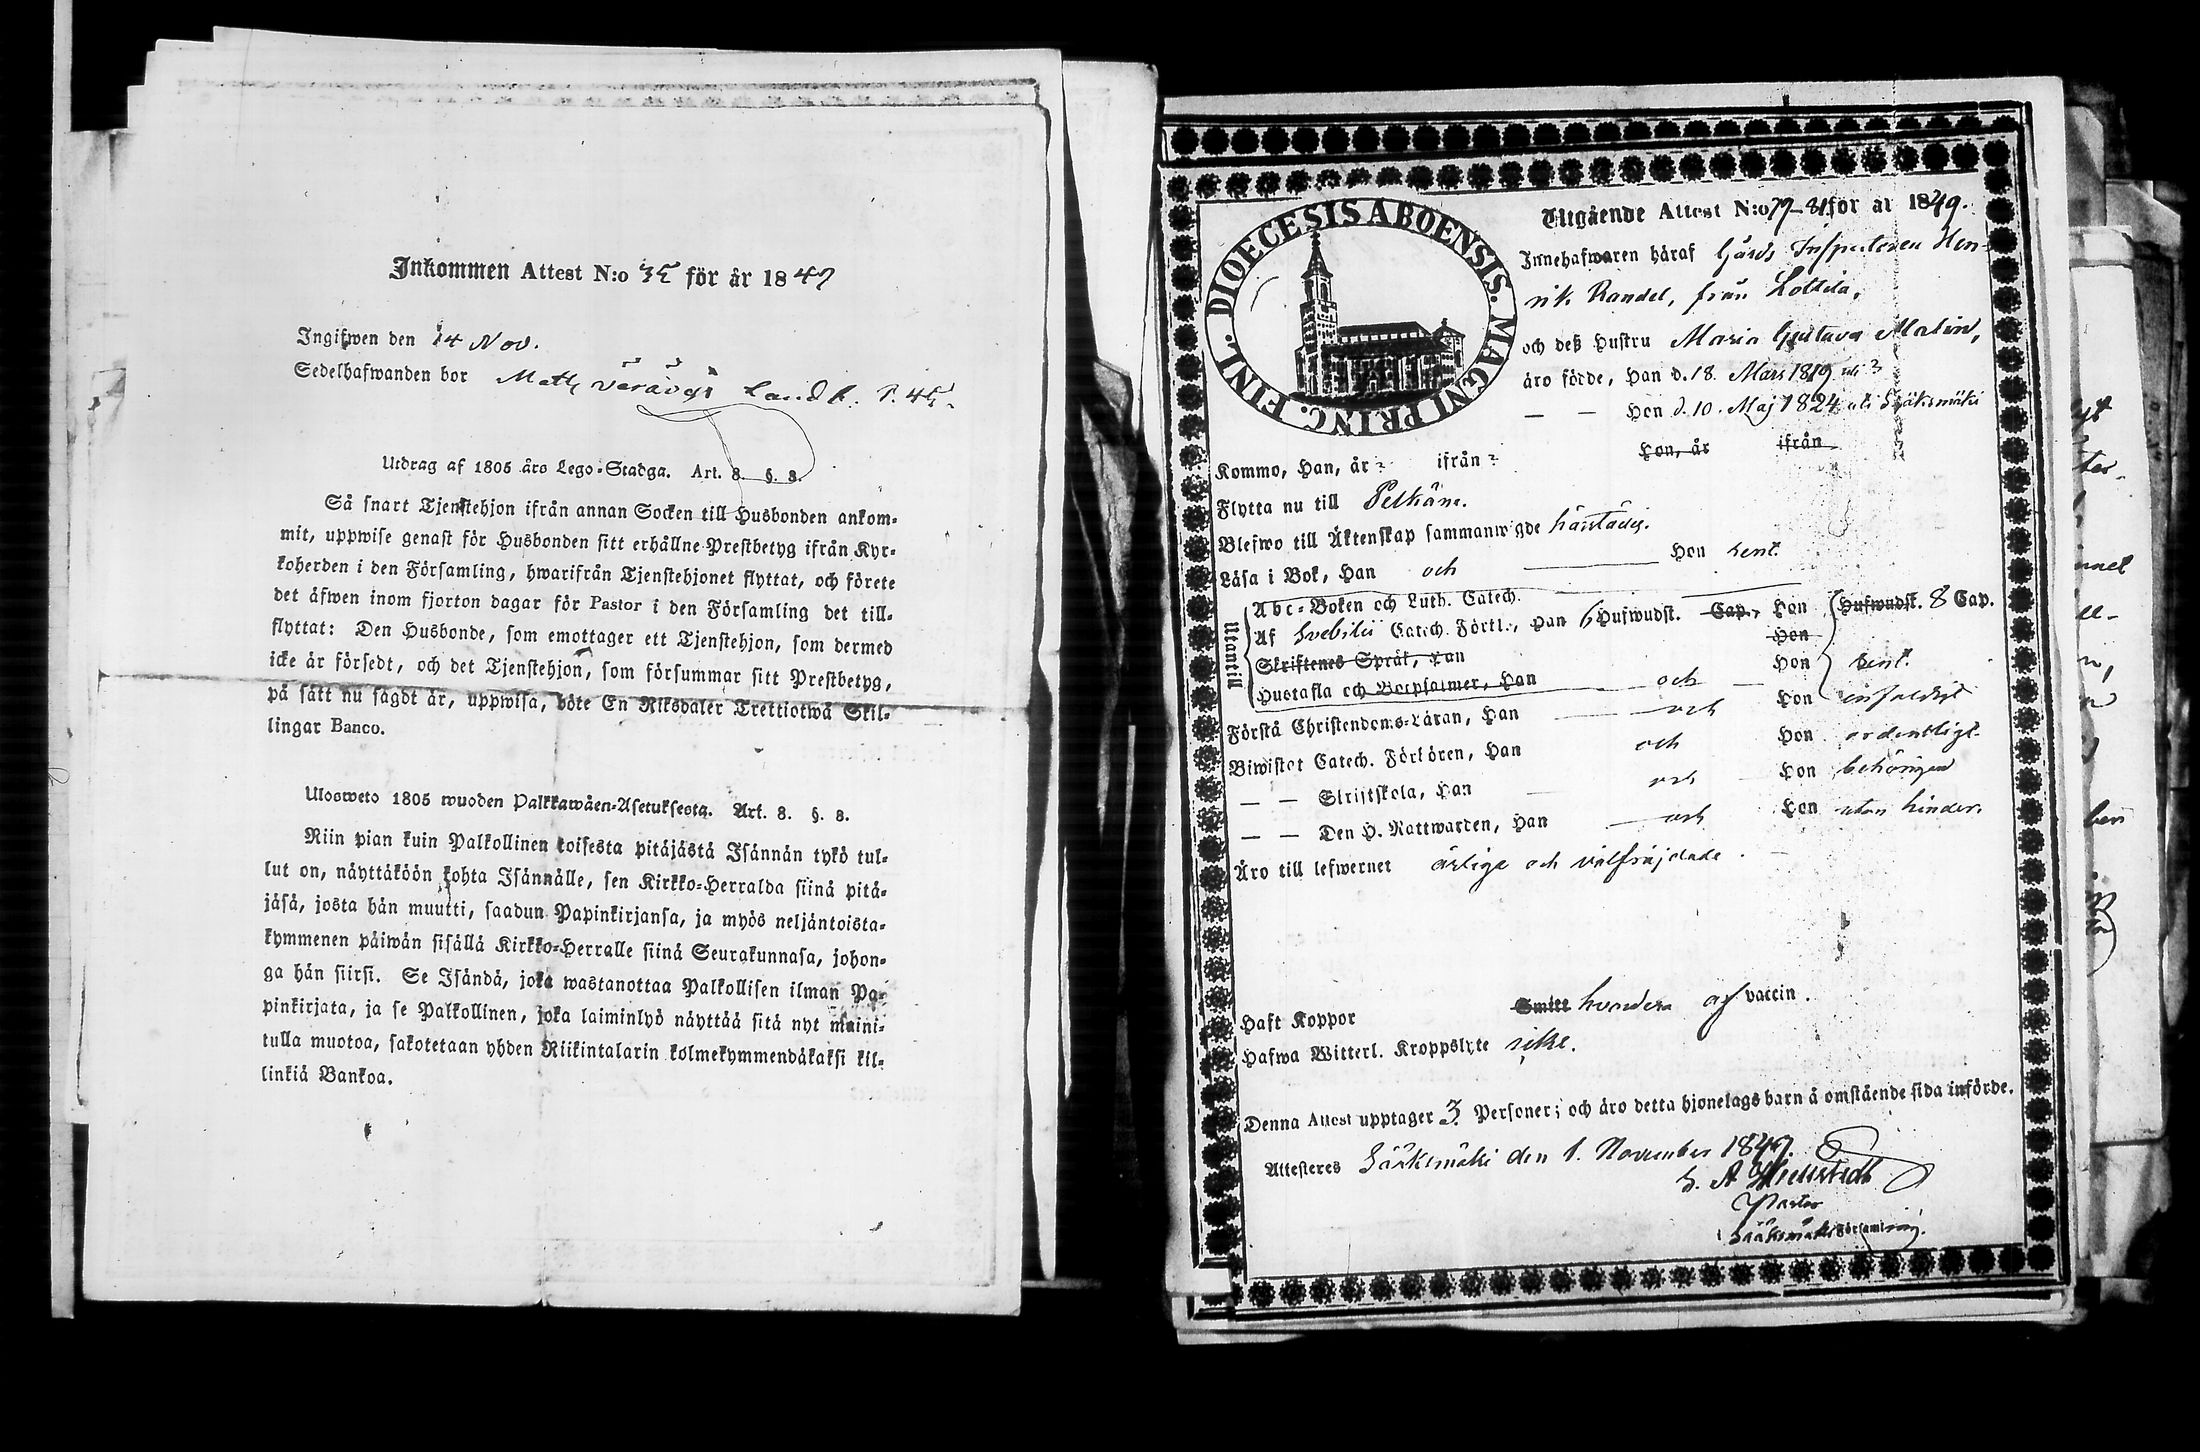 Inkommen Attest N:o 35 för år 1847
Ingifwen den 14 Nov.
Sedelhafwanden bor
Utdrag af 1805 års Lego-Stadga. Art. 8. §. 8.
Så snart Tjenstehjon ifrån annan Socken till Husbonden ankom-
mit, uppwise genast för Husbonden sitt erhållne Prestbetyg ifrån Kyr-
koherden i den Församling, hwarifrån Tjenstehjonet flyttat, och förete
det äfwen inom fjorton dagar för Pastor i den Församling det till-
flyttat: Den Husbonde, som emottager ett Tjenstehjon, som dermed
icke är försedt, och det Tjenstehjon, som försummar sitt Prestbetyg,
på sätt nu sagdt är, uppwisa, böte En Riksdaler Trettiotwå Skil-
lingar Banco.
Ulosweto 1805 wuoden Palkkawäen-Asetuksesta. Art. 8. §. 8.
Niin pian kuin Palkollinen toisesta pitäjästä Isännän tykö tul-
lut on, näyttäköön kohta Isännälle, sen Kirkko-Herralda siinä pitä-
jäsä, josta hän muutti, saadun Papinkirjansa, ja myös neljäntoista-
kymmenen päiwän sisällä Kirkko-Herralle siinä Seurakunnasa, johon-
ga hän siirsi. Se Isändä, joka wastanottaa Palkollisen ilman Pa-
pinkirjata, ja se Palkollinen, joka laiminlyö näyttää sitä nyt maini-
tulla muotoa, sakotetaan yhden Riikintalarin kolmekymmendäkaksi kil-
linkiä Bankoa.
DIOECESIS ABOENSIS. MAGNI PRINC. FINL.
Utgående Attest N:o 79-81 för år 1849.
Innehafwaren häraf Gårds Inspectoren Hen-
rik Randel, från
och deß Hustru Maria Gustava Malin,
äro födde, Han d. 18 Mars 1819 uti ?
— — Hon d. 10. Maj 1824 uti Sääksmäki
Kommo, Han, år ? ifrån ? Hon, år ifrån
Flytta nu till Pelkäne.
Blefwo till Äktenskap sammanwigde härstädes.
Läsa i Bok, Han och Hon rent.
Utantill
Abc-Boken och Luth. Catech.
Af Svebilii Catech. Förkl., Han 6 Hufwudst. Cap., Hon Hufwudst. 8 Cap.
Skriftenes Språk, Han Hon
Hustafla och Botpsalmer, Han och Hon rent.
Förstå Christendoms-Läran, Han och Hon enfaldigt
Biwistat Catech. Förhören, Han och Hon ordentligt.
— — Skriftskola, Han och Hon behörigen
— — Den H. Nattwarden, Han och Hon utan hinder.
Äro till lefwernet ärlige och välfräjdade.
Haft Koppor Smitt hvardera af vaccin.
Hafwa Witterl. Kroppslyte icke.
Denna Attest upptager 3 Personer; och äro detta hjonelags barn å omstående sida införde.
Attesteres Sääksmäki den 1. November 1849.
Pastor
Sääksmäki Församling.